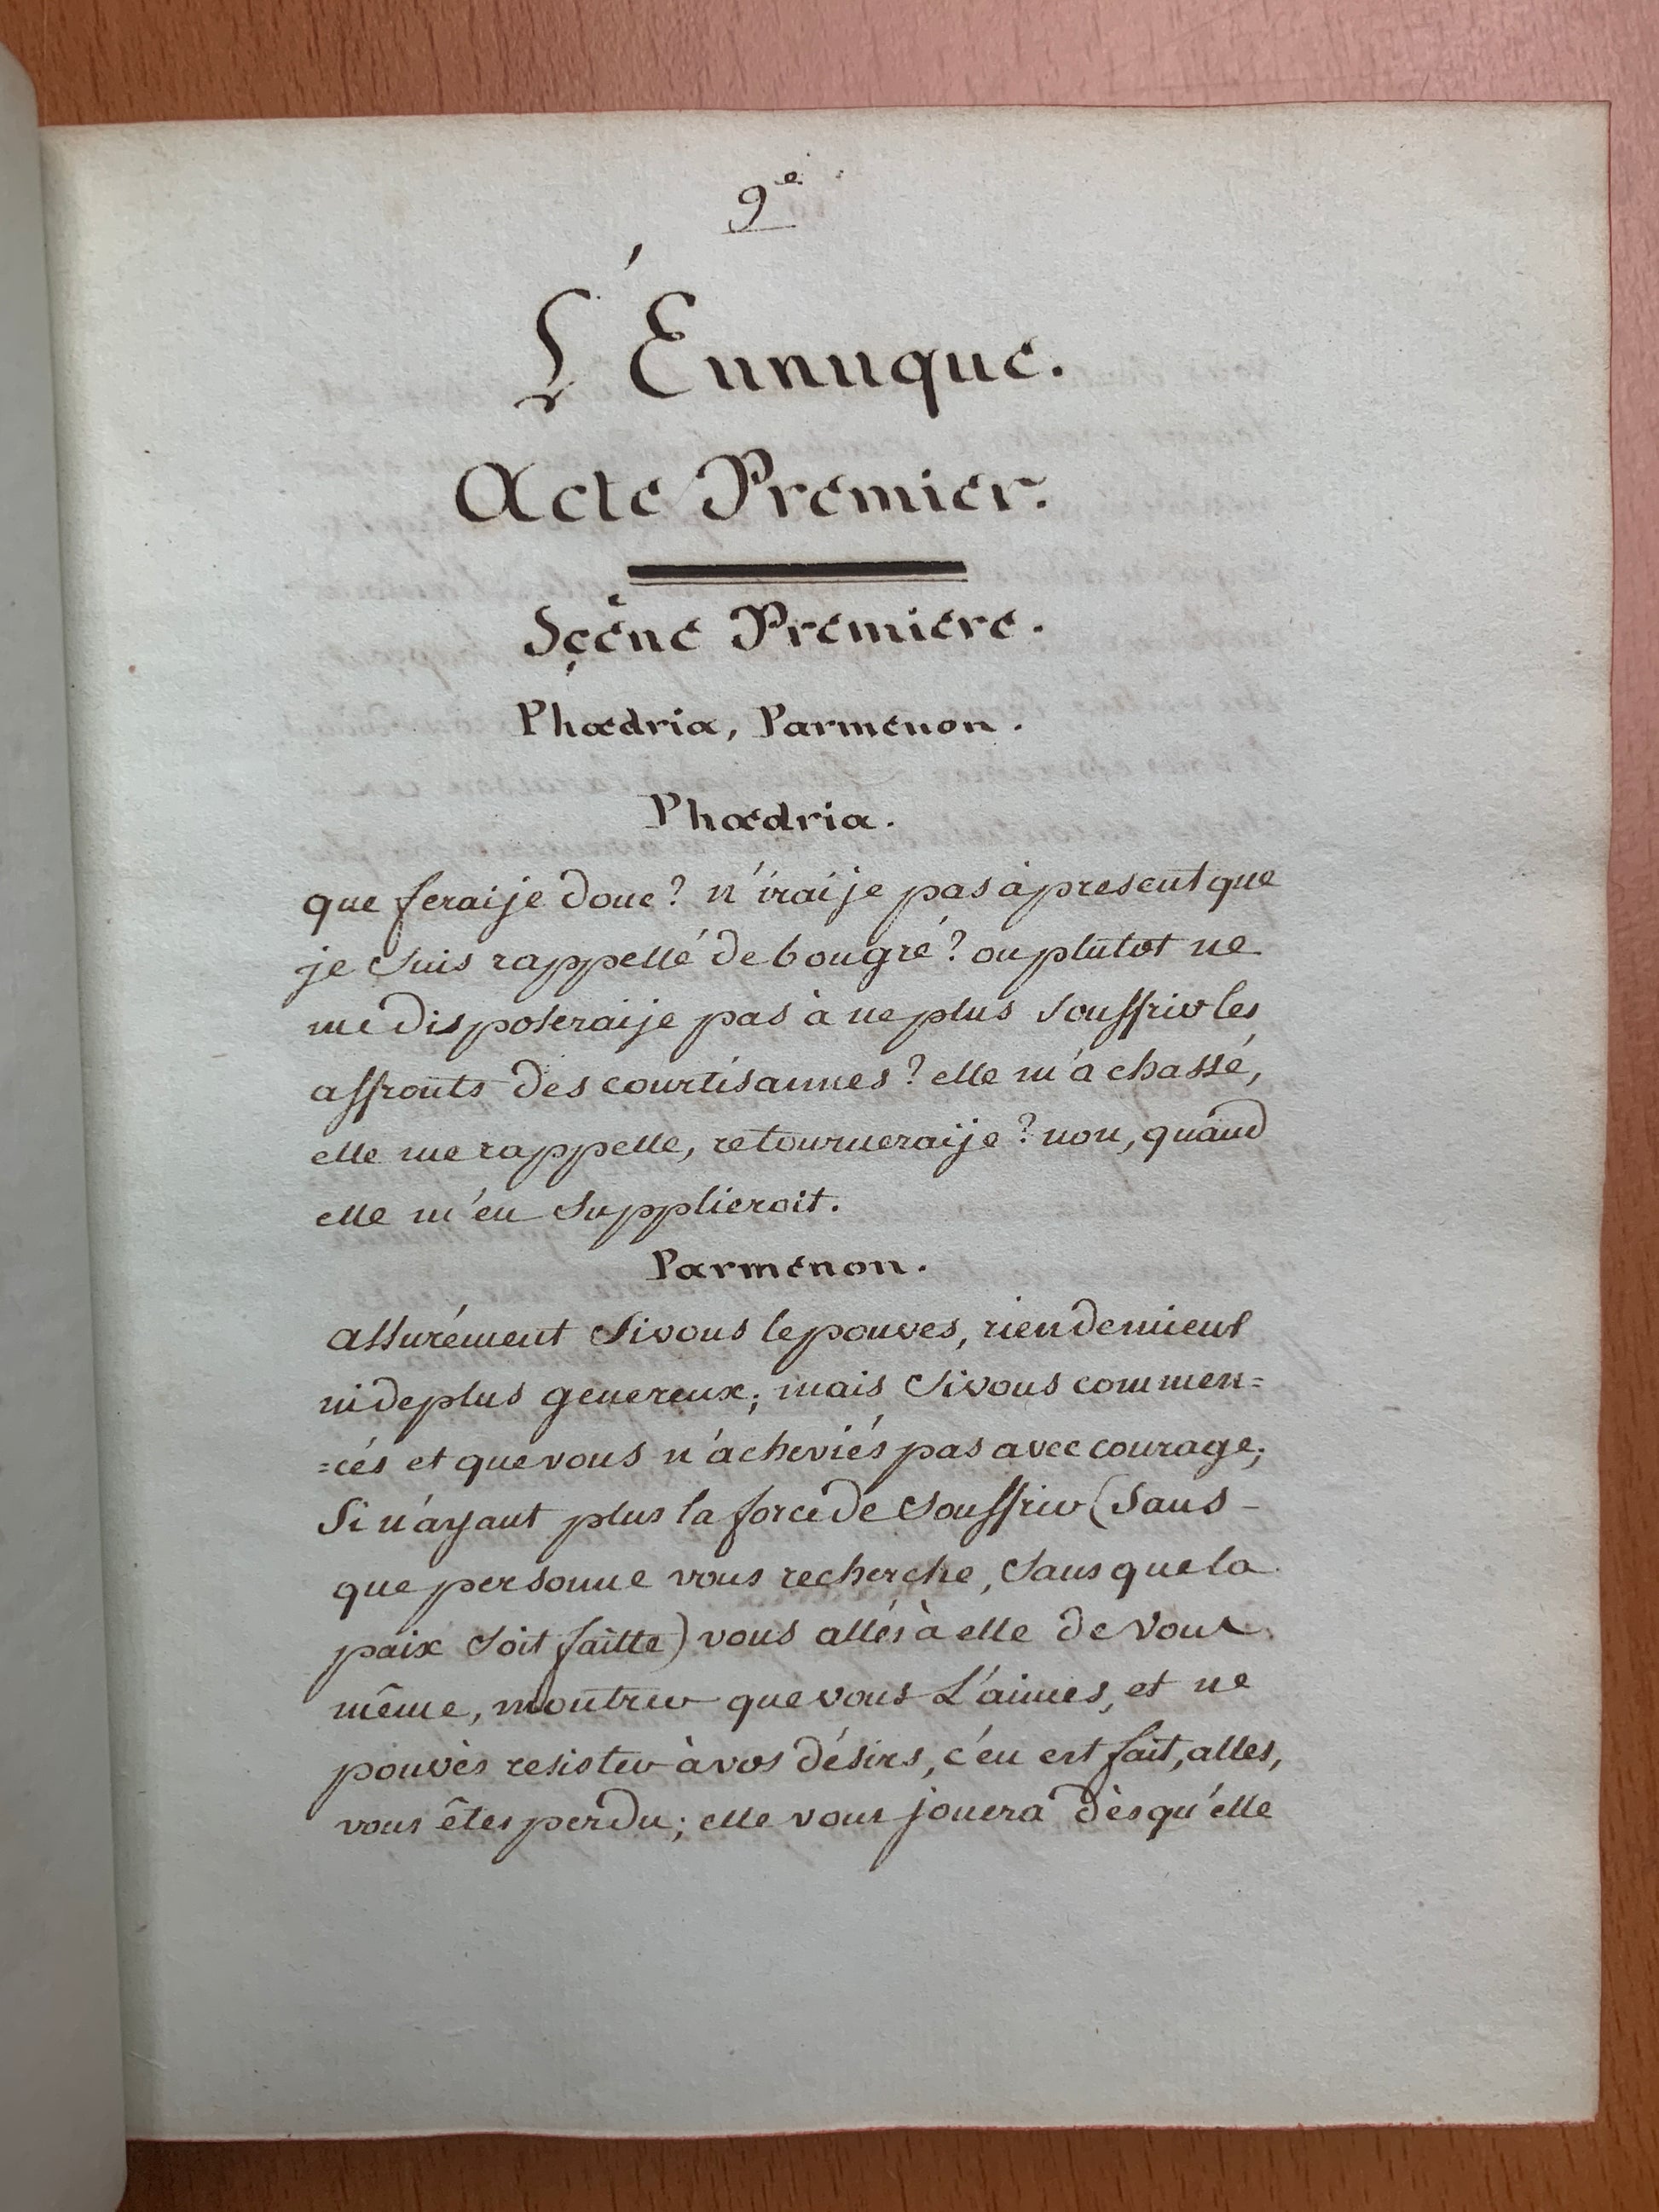 9e
L'Eunuque.
Acte Premier.
Sçêne Premiere.
Phœdria, Parménon.
Phœdria.
que feraije donc? n'iraije pas àpresent que
je suis rappellé de bongré? ou plutot ne
me disposeraije pas à ne plus souffrir les
affronts des courtisannes? elle m'a chassé,
elle me rappelle, retourneraije? non, quand
elle m'en supplieroit.
Parménon.
assurément si vous le pouves, rien de mieux
ni de plus genereux; mais si vous commen=
=cés et que vous n'acheviés pas avec courage;
Si n'ayant plus la force de souffrir (sans-
que personne vous recherche, sans que la
paix soit faitte) vous allés à elle de vous
même, montrer que vous L'aimes, et ne
pouvès resister à vos désirs, c'en est fait, alles,
vous êtes perdu; elle vous jouera dès qu'elle